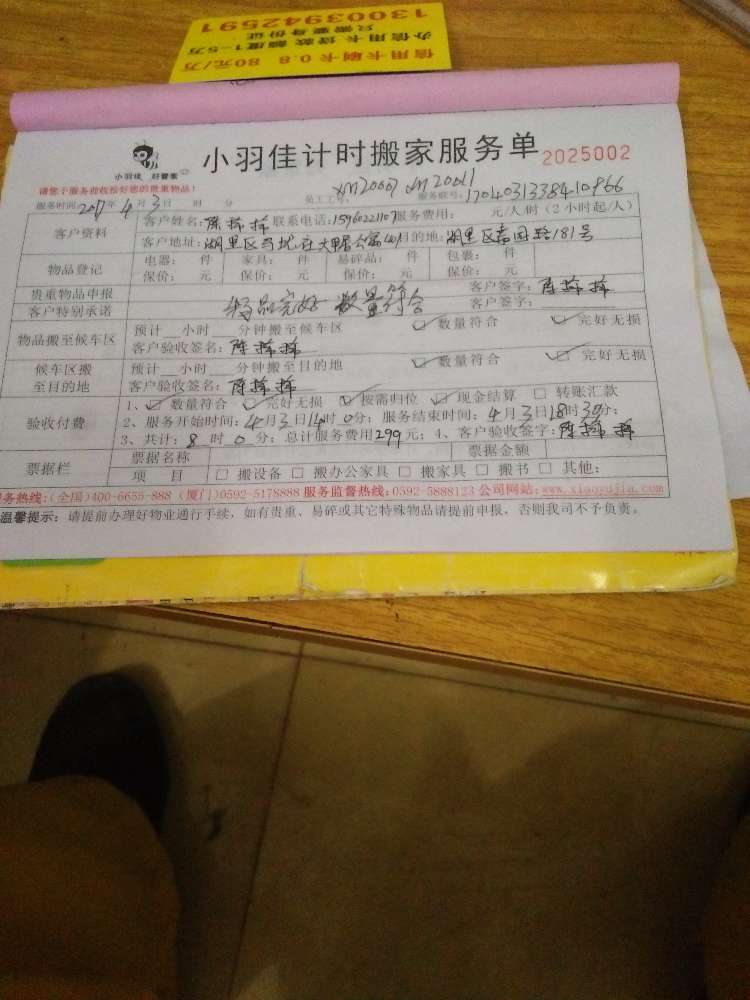 13003942591
办信用卡贷款额度1-5万
只需要身份证
信用卡刷卡0.8 80元/万
小羽佳 好管家
小羽佳计时搬家服务单 2025002
请您于服务前收捡好您的贵重物品!
服务时间: 2017年4月3日 时 分 员工工号: XM20007 XM20011 服务账号: 1704031338410866
客户资料 客户姓名: 陈 联系电话: 15960221107 服务费用: 元/人/时(2小时起/人)
客户地址: 湖里区 目的地: 湖里区 路181号
物品登记 电器: 件 家具: 件 易碎品: 件 包裹: 件
保价: 元 保价: 元 保价: 元 保价: 元
贵重物品申报 客户签字: 陈
客户特别承诺 物品完好 数量符合 客户签字:
物品搬至候车区 预计__小时__分钟搬至候车区 ☑数量符合 ☑完好无损
客户验收签名: 陈
候车区搬至目的地 预计__小时__分钟搬至目的地 ☑数量符合 ☑完好无损
客户验收签名: 陈
验收付费 1、☑数量符合 ☑完好无损 ☑按需归位 ☑现金结算 □转账汇款
2、服务开始时间: 4月3日14时0分; 服务结束时间: 4月3日18时30分;
3、共计: 8时0分; 总计服务费用299元; 4、客户验收签字: 陈
票据栏 票据名称 票据金额
项 目 □搬设备 □搬办公家具 □搬家具 □搬书 □其他:
务热线:(全国)400-6655-888 (厦门)0592-5178888 服务监督热线: 0592-5888123 公司网站: www.xiaoyujia.com
温馨提示: 请提前办理好物业通行手续, 如有贵重、易碎或其它特殊物品请提前申报, 否则我司不予负责。